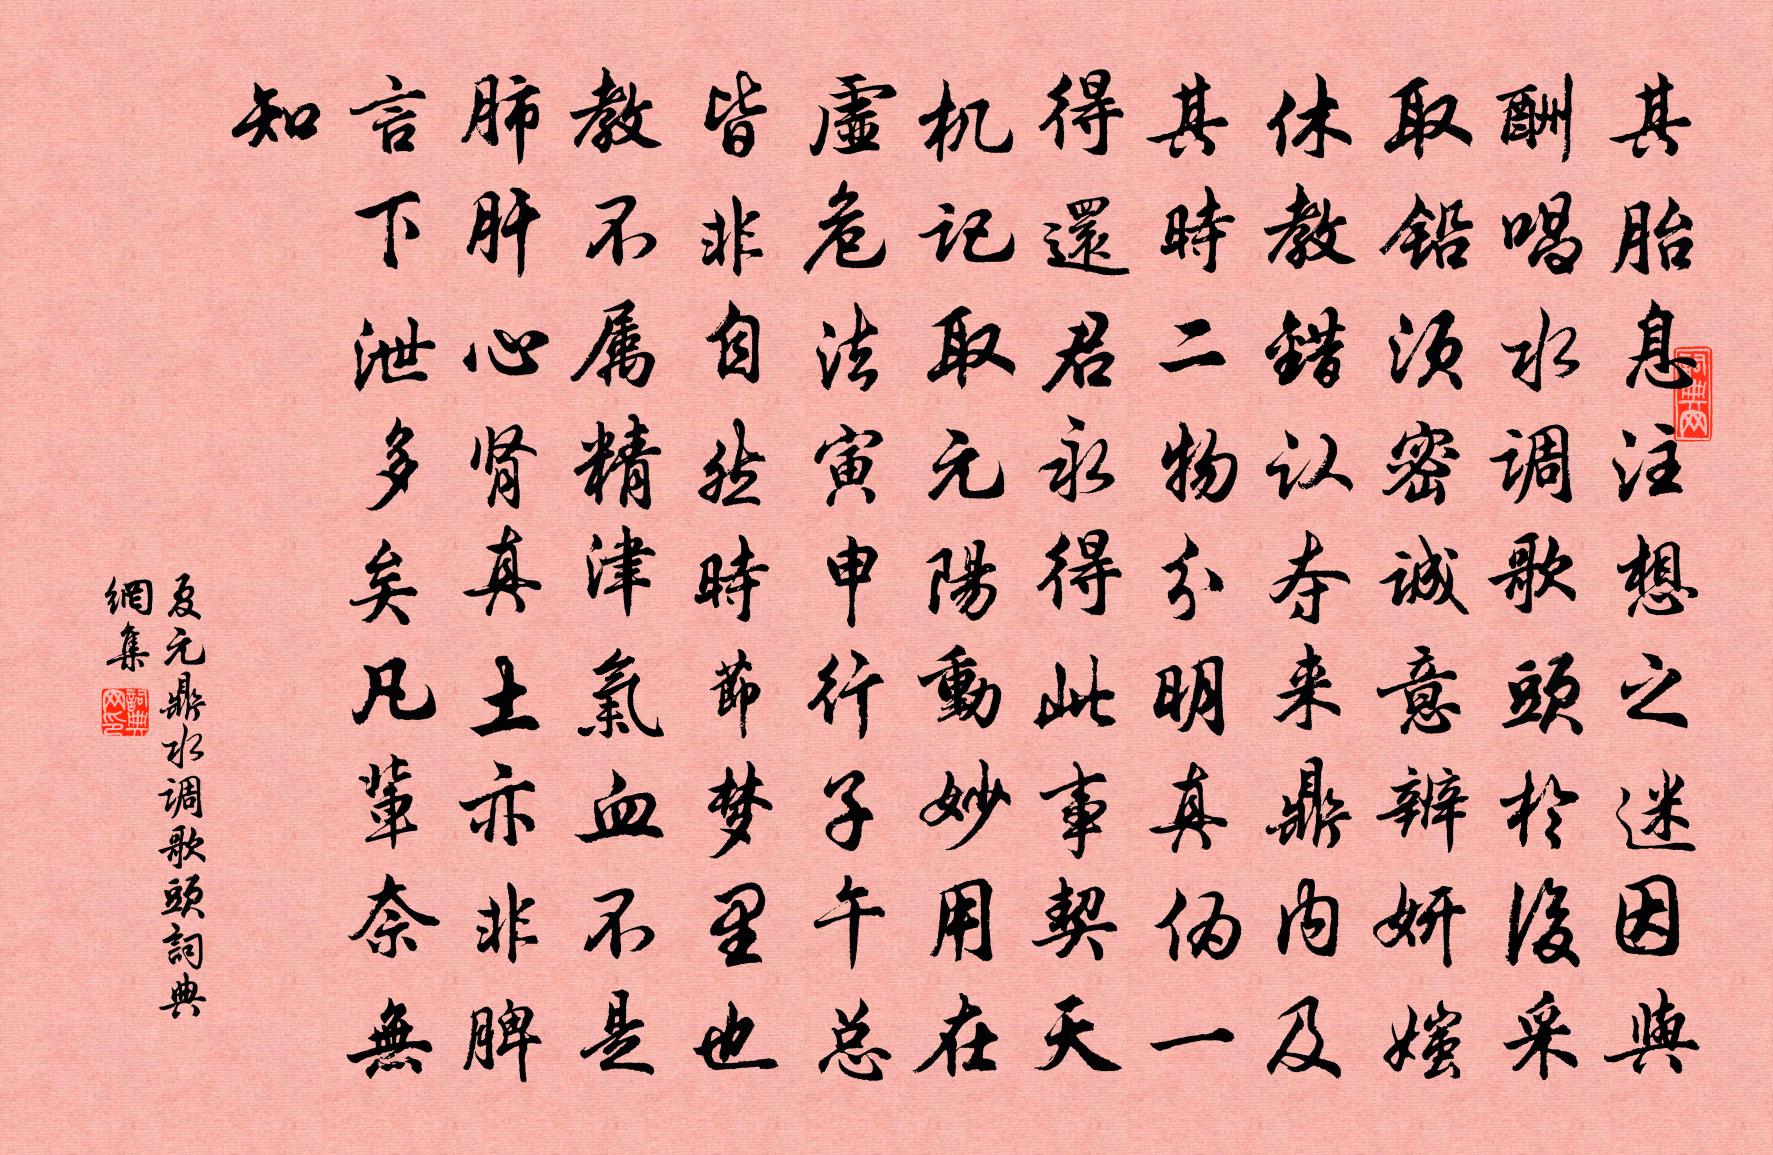 其胎息注想之迷因與
酬唱水调歌頭於後采
取鉛须密诚意辨妍媸
休教錯认夺来鼎内及
其時二物分明真伪一
得還君永得此事契天
机记取元陽動妙用在
虛危法寅申行子午总
皆非自然時節梦里也
教不属精津氣血不是
肺肝心肾真土亦非脾
言下泄多矣凡輩奈無
知
夏元鼎水调歌頭詞典
網集
詞典网